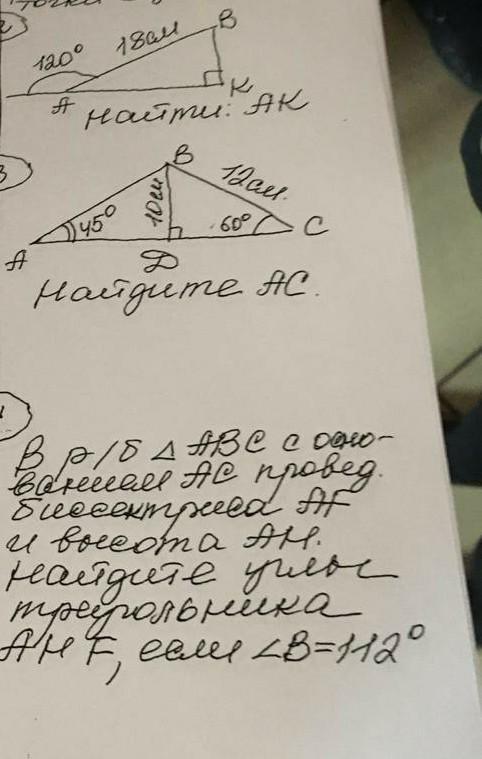 2
120° 18см B
A K
Найти: AK
3
B
12см.
45° 10см 60° C
A D
Найдите AC.
В р/б △ ABC с осно-
ванием AC провед.
биссектриса AF
и высота AH.
Найдите углы
треугольника
AHF, если ∠B=112°